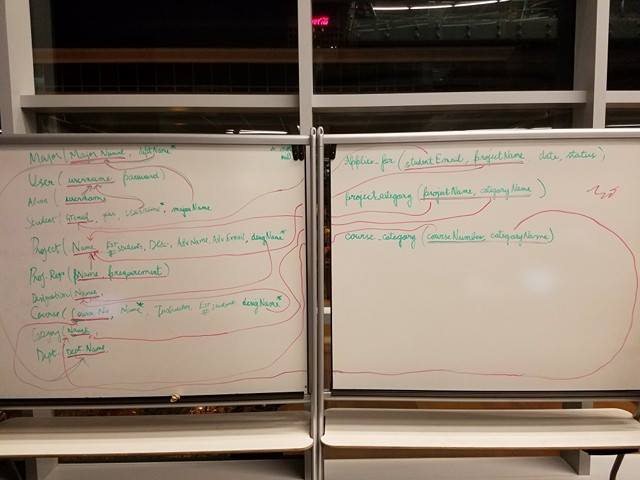 Major (Major Name, deptName*
User (username, password)
Admin (username
Student (GTemail, year, username*, majorName
Project (Name, Est # students, Desc, AdvName, Adv Email, desigName*
Proj. Reqs (PName, prequirement)
Designation (Name
Course (Course No, Name*, Instructor, Est # student, desigName*
Category (Name
Dept (Dept Name
Applies_for (studentEmail, projectName date, status)
project_category (projectName, categoryName)
course_category (courseNumber, categoryName)